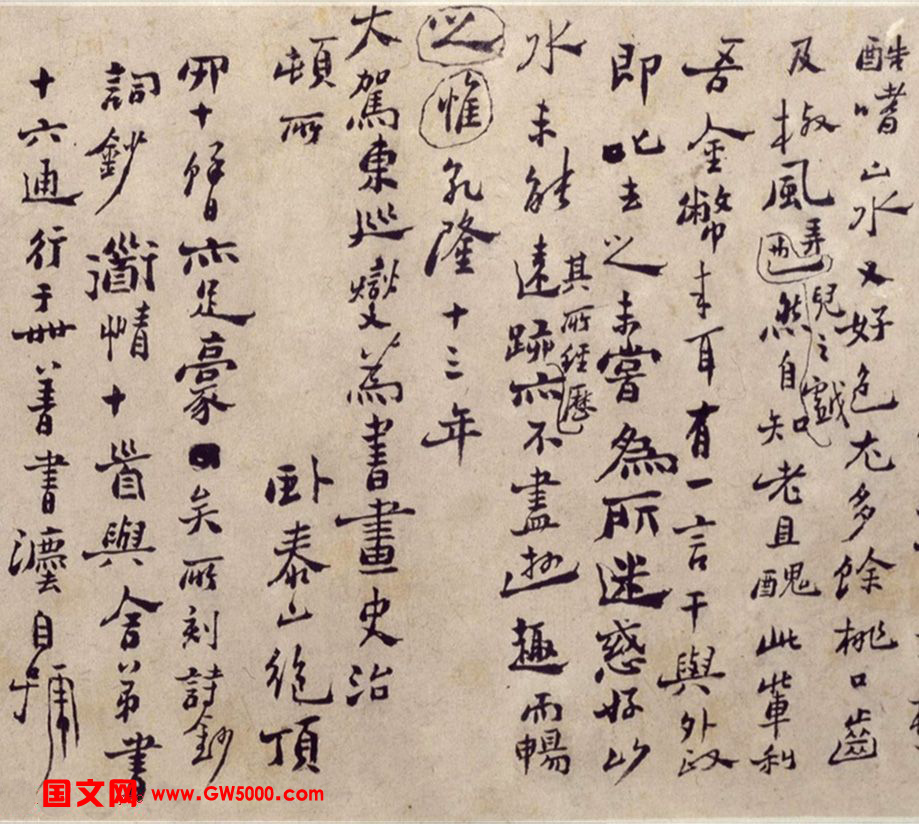 酷嗜山水又好色尤多餘桃口齒
及椒風弄兒之戲然自知老且醜此輩利
吾金幣来耳有一言干與外政
即叱去之未嘗為所迷惑好山
水未能遠跡其所經歷亦不盡遊趣而暢
之惟乾隆十三年
大駕東巡燮為書畫史治
頓所卧泰山絶頂
四十餘日亦足豪矣所刻詩鈔
詞鈔衜情十首與舍弟書
十六通行于世善書灋自號
国文网 www.GW5000.com